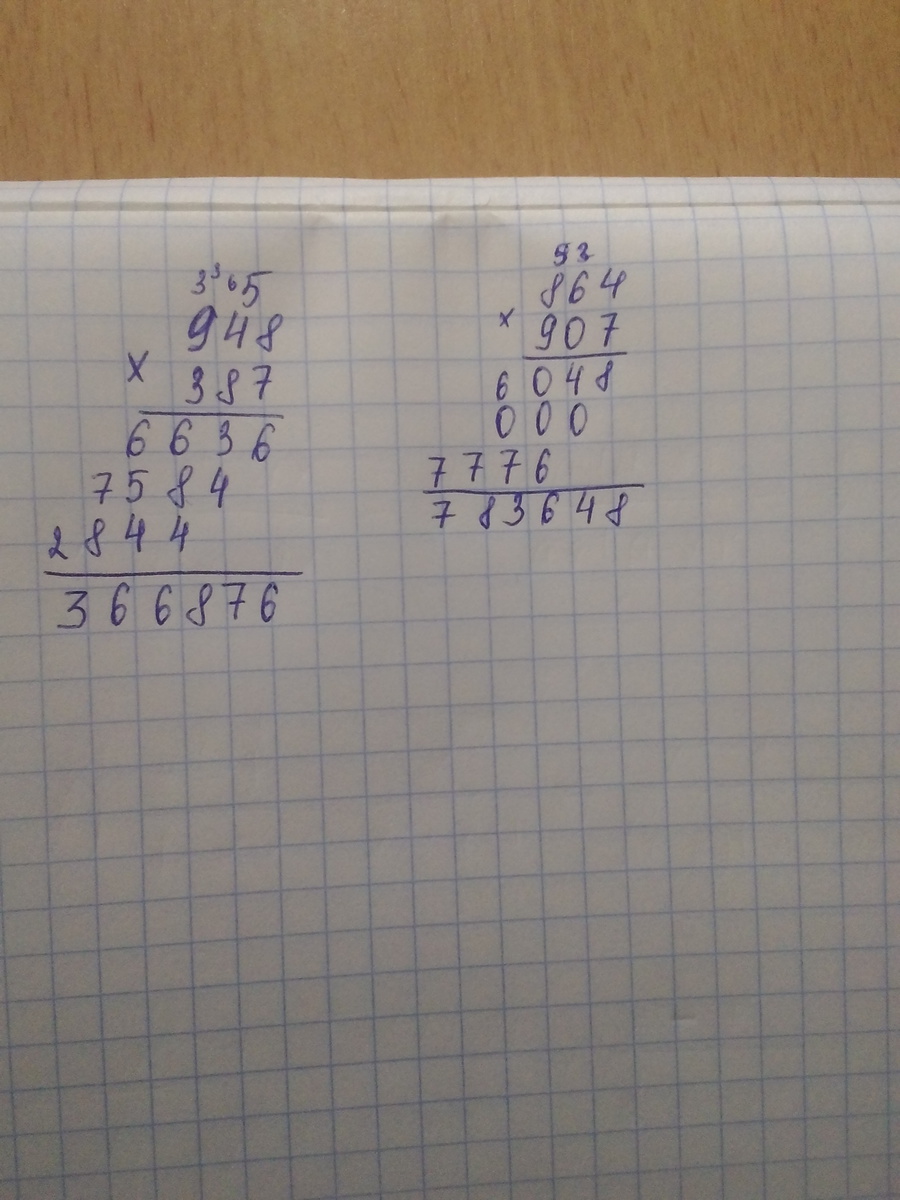 3 3 6 5
948
×
387
6636
7584
2844
366876
9 2
864
×
907
6048
000
7776
783648